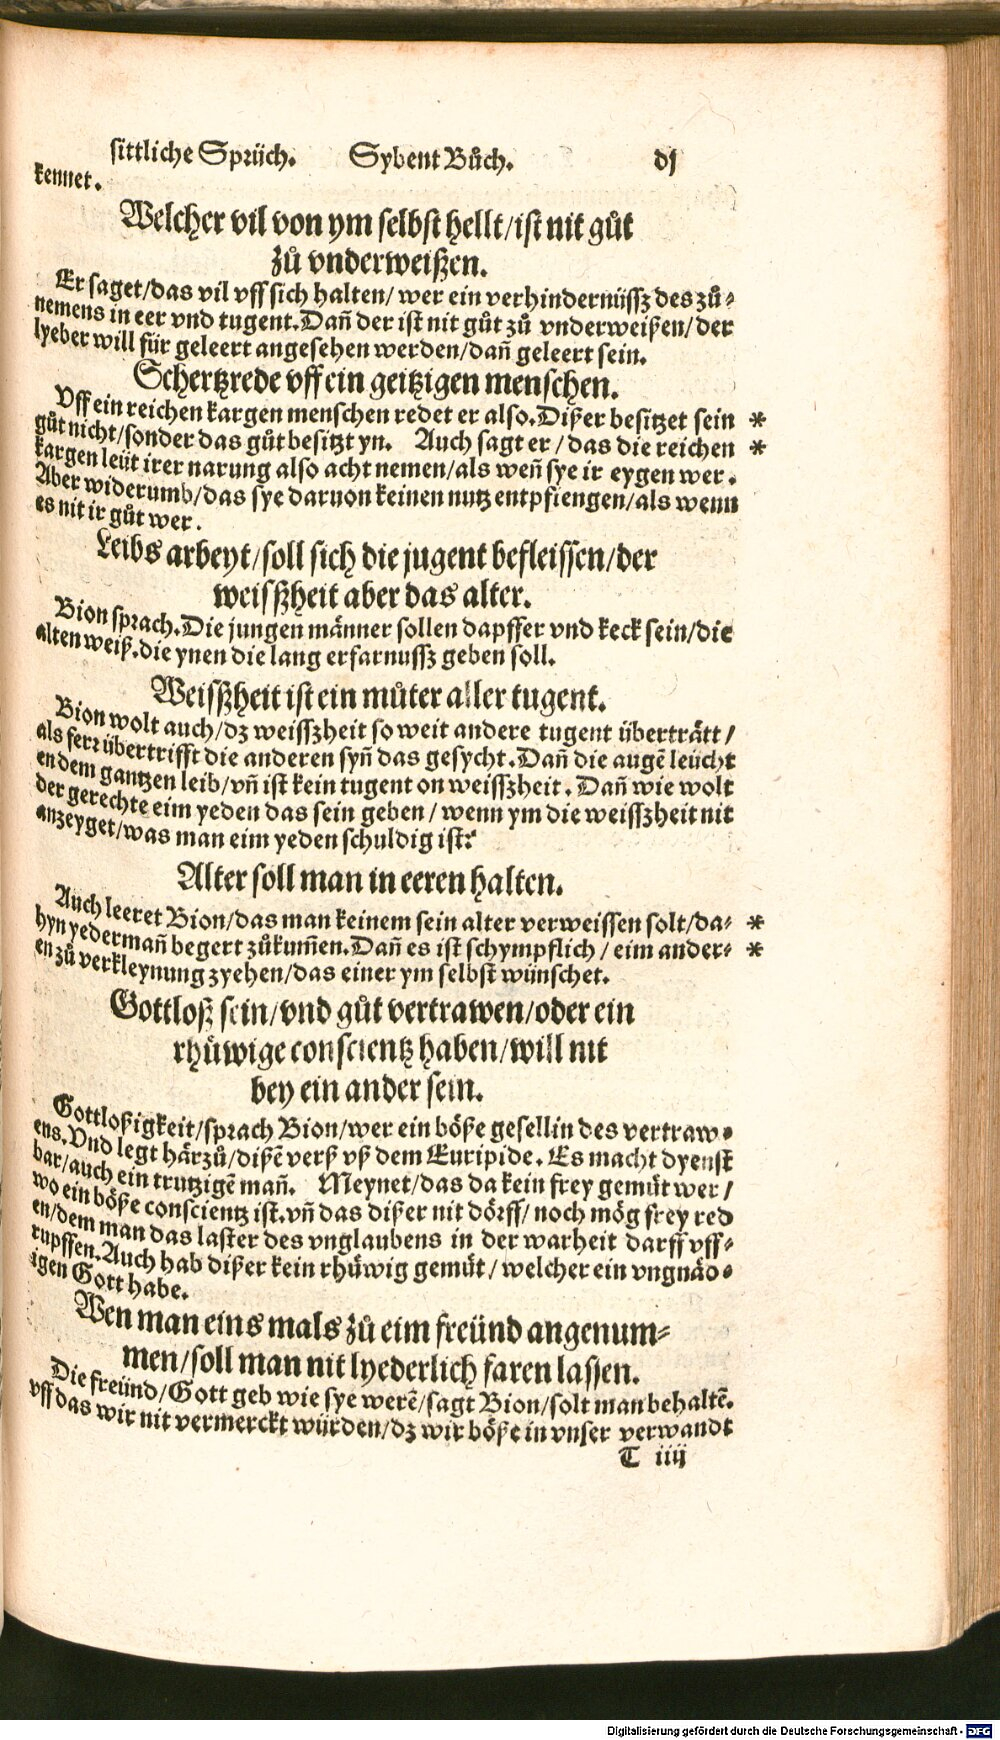 sittliche Sprüch. Sybent Bůch. dj
kennet.
Welcher vil von ym selbst hellt/ist nit gůt
zů vnderweißen.
Er saget/das vil vff sich halten/ wer ein verhindernüssz des zů⸗
nemens in eer vnd tugent. Dañ der ist nit gůt zů vnderweißen/der
lyeber will für geleert angesehen werden/dañ geleert sein.
Schertzrede vff ein geitzigen menschen.
Vff ein reichen kargen menschen redet er also. Dißer besitzet sein *
gůt nicht/sonder das gůt besitzt yn. Auch sagt er/das die reichen *
kargen leüt irer narung also acht nemen/als weñ sye ir eygen wer.
Aber widerumb/das sye daruon keinen nutz entpfiengen/als wenn
es nit ir gůt wer.
Leibs arbeyt/soll sich die jugent befleissen/der
weisßheit aber das alter.
Bion sprach. Die jungen männer sollen dapffer vnd keck sein/die
alten weiß. die ynen die lang erfarnussz geben soll.
Weisßheit ist ein můter aller tugent.
Bion wolt auch/dz weisszheit so weit andere tugent überträtt/
als ferꝛ übertrifft die anderen syñ das gesycht. Dañ die augẽ leücht
en dem gantzen leib/vñ ist kein tugent on weisszheit. Dañ wie wolt
der gerechte eim yeden das sein geben/ wenn ym die weisszheit nit
anzeyget/was man eim yeden schuldig ist:
Alter soll man in eeren halten.
Auch leeret Bion/das man keinem sein alter verweissen solt/da⸗ *
hyn yederman̄ begert zůkum̄en. Dañ es ist schympflich/ eim ander⸗ *
en zů verkleynung zyehen/das einer ym selbst wünschet.
Gottloß sein/vnd gůt vertrawen/oder ein
rhüwige conscientz haben/will nit
bey ein ander sein.
Gottloßigkeit/sprach Bion/wer ein böße gesellin des vertraw⸗
ens. Vnd legt härzů/dißẽ verß vß dem Euripide. Es macht dyenst
bar/auch ein trutzigẽ mañ. Meynet/das da kein frey gemüt wer/
wo ein böße conscientz ist. vñ das dißer nit dörff/noch mög frey red
en/dem man das laster des vnglaubens in der warheit darff vff⸗
rupffen. Auch hab dißer kein rhüwig gemüt/welcher ein vngnäd⸗
igen Gott habe.
Wen man eins mals zů eim freünd angenum⸗
men/soll man nit lyederlich faren lassen.
Die freünd/Gott geb wie sye werẽ/sagt Bion/solt man behaltẽ.
vff das wir nit vermerckt würden/dz wir böße in vnser verwandt
T iiij
Digitalisierung gefördert durch die Deutsche Forschungsgemeinschaft - DFG